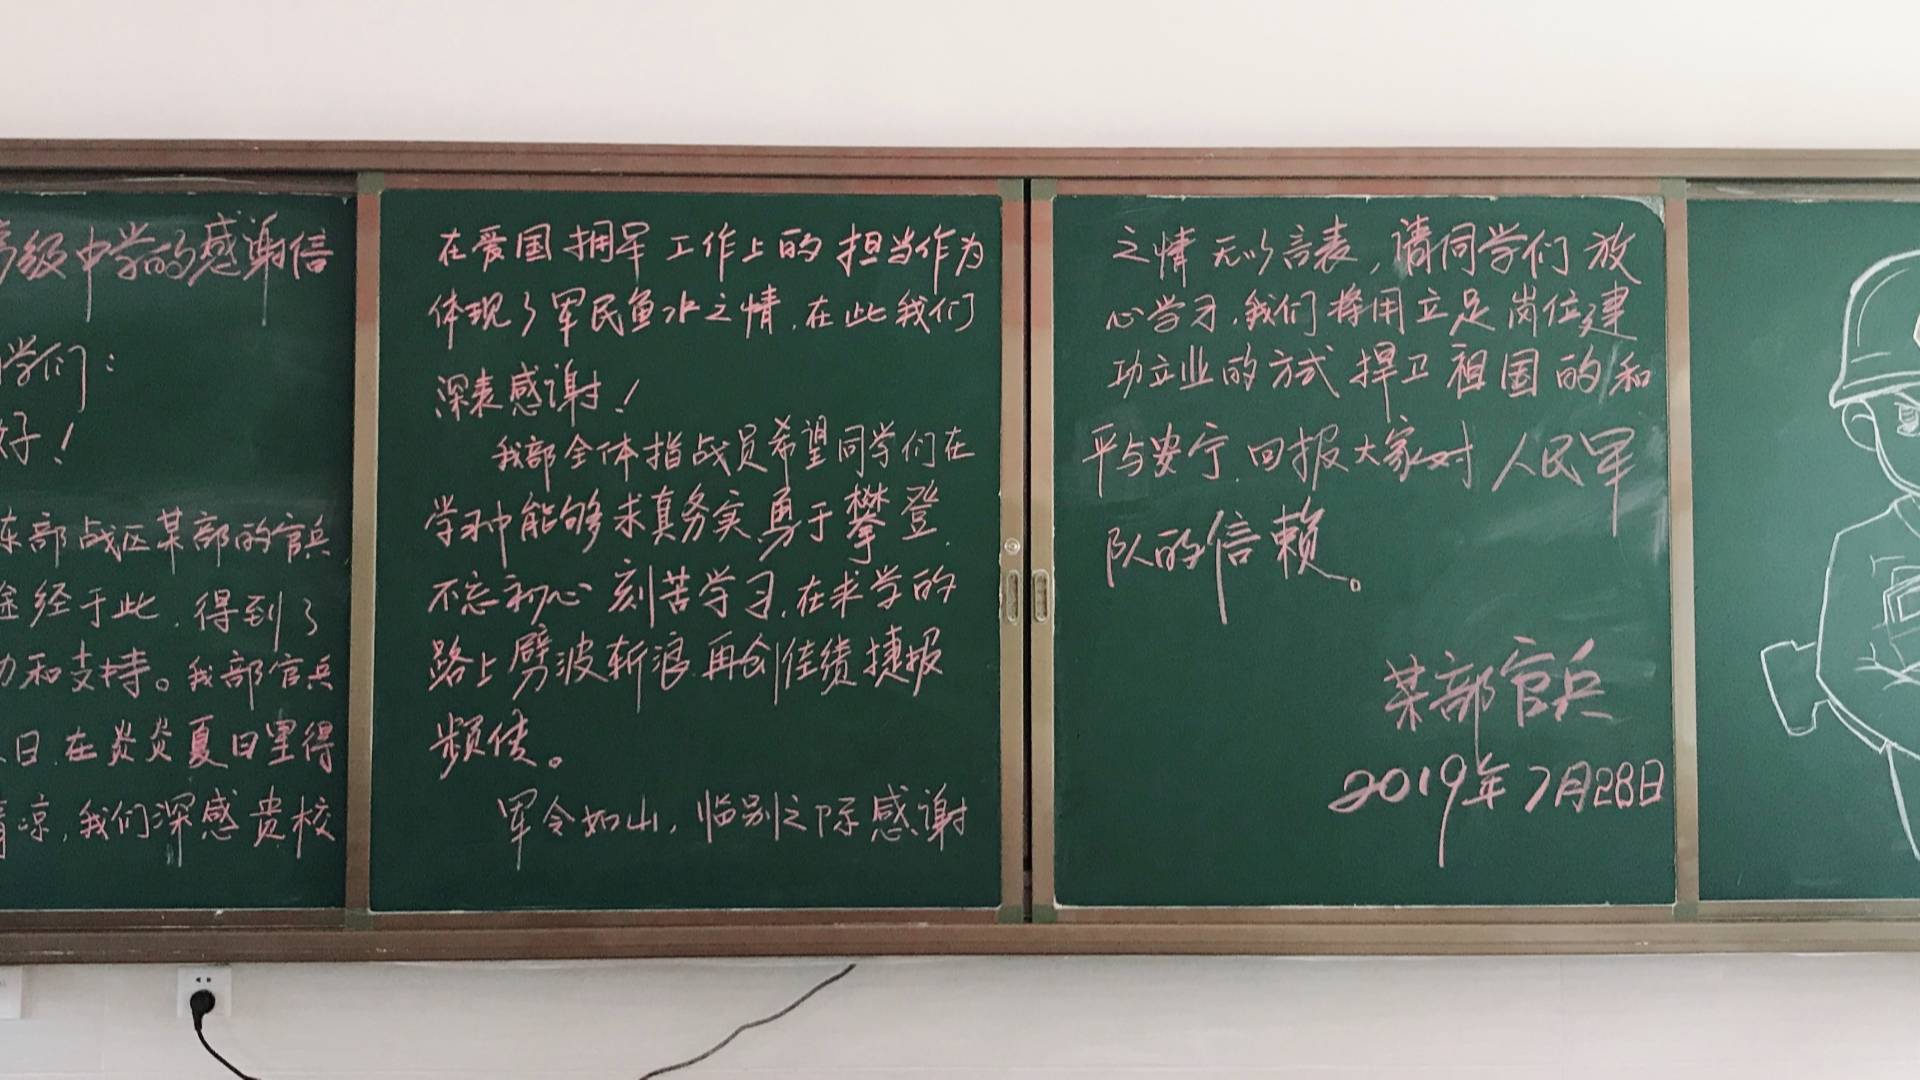 高级中学的感谢信
学们：
好！
东部战区某部的官兵
途经于此，得到了
力和支持。我部官兵
日，在炎炎夏日里得
清凉，我们深感贵校
在爱国拥军工作上的担当作为
体现了军民鱼水之情，在此我们
深表感谢！
我部全体指战员希望同学们在
学习中能够求真务实勇于攀登，
不忘初心刻苦学习，在求学的
路上劈波斩浪再创佳绩捷报
频传。
军令如山，临别之际感谢
之情无以言表，请同学们放
心学习，我们将用立足岗位建
功立业的方式捍卫祖国的和
平与安宁，回报大家对人民军
队的信赖。
某部官兵
2019年7月28日